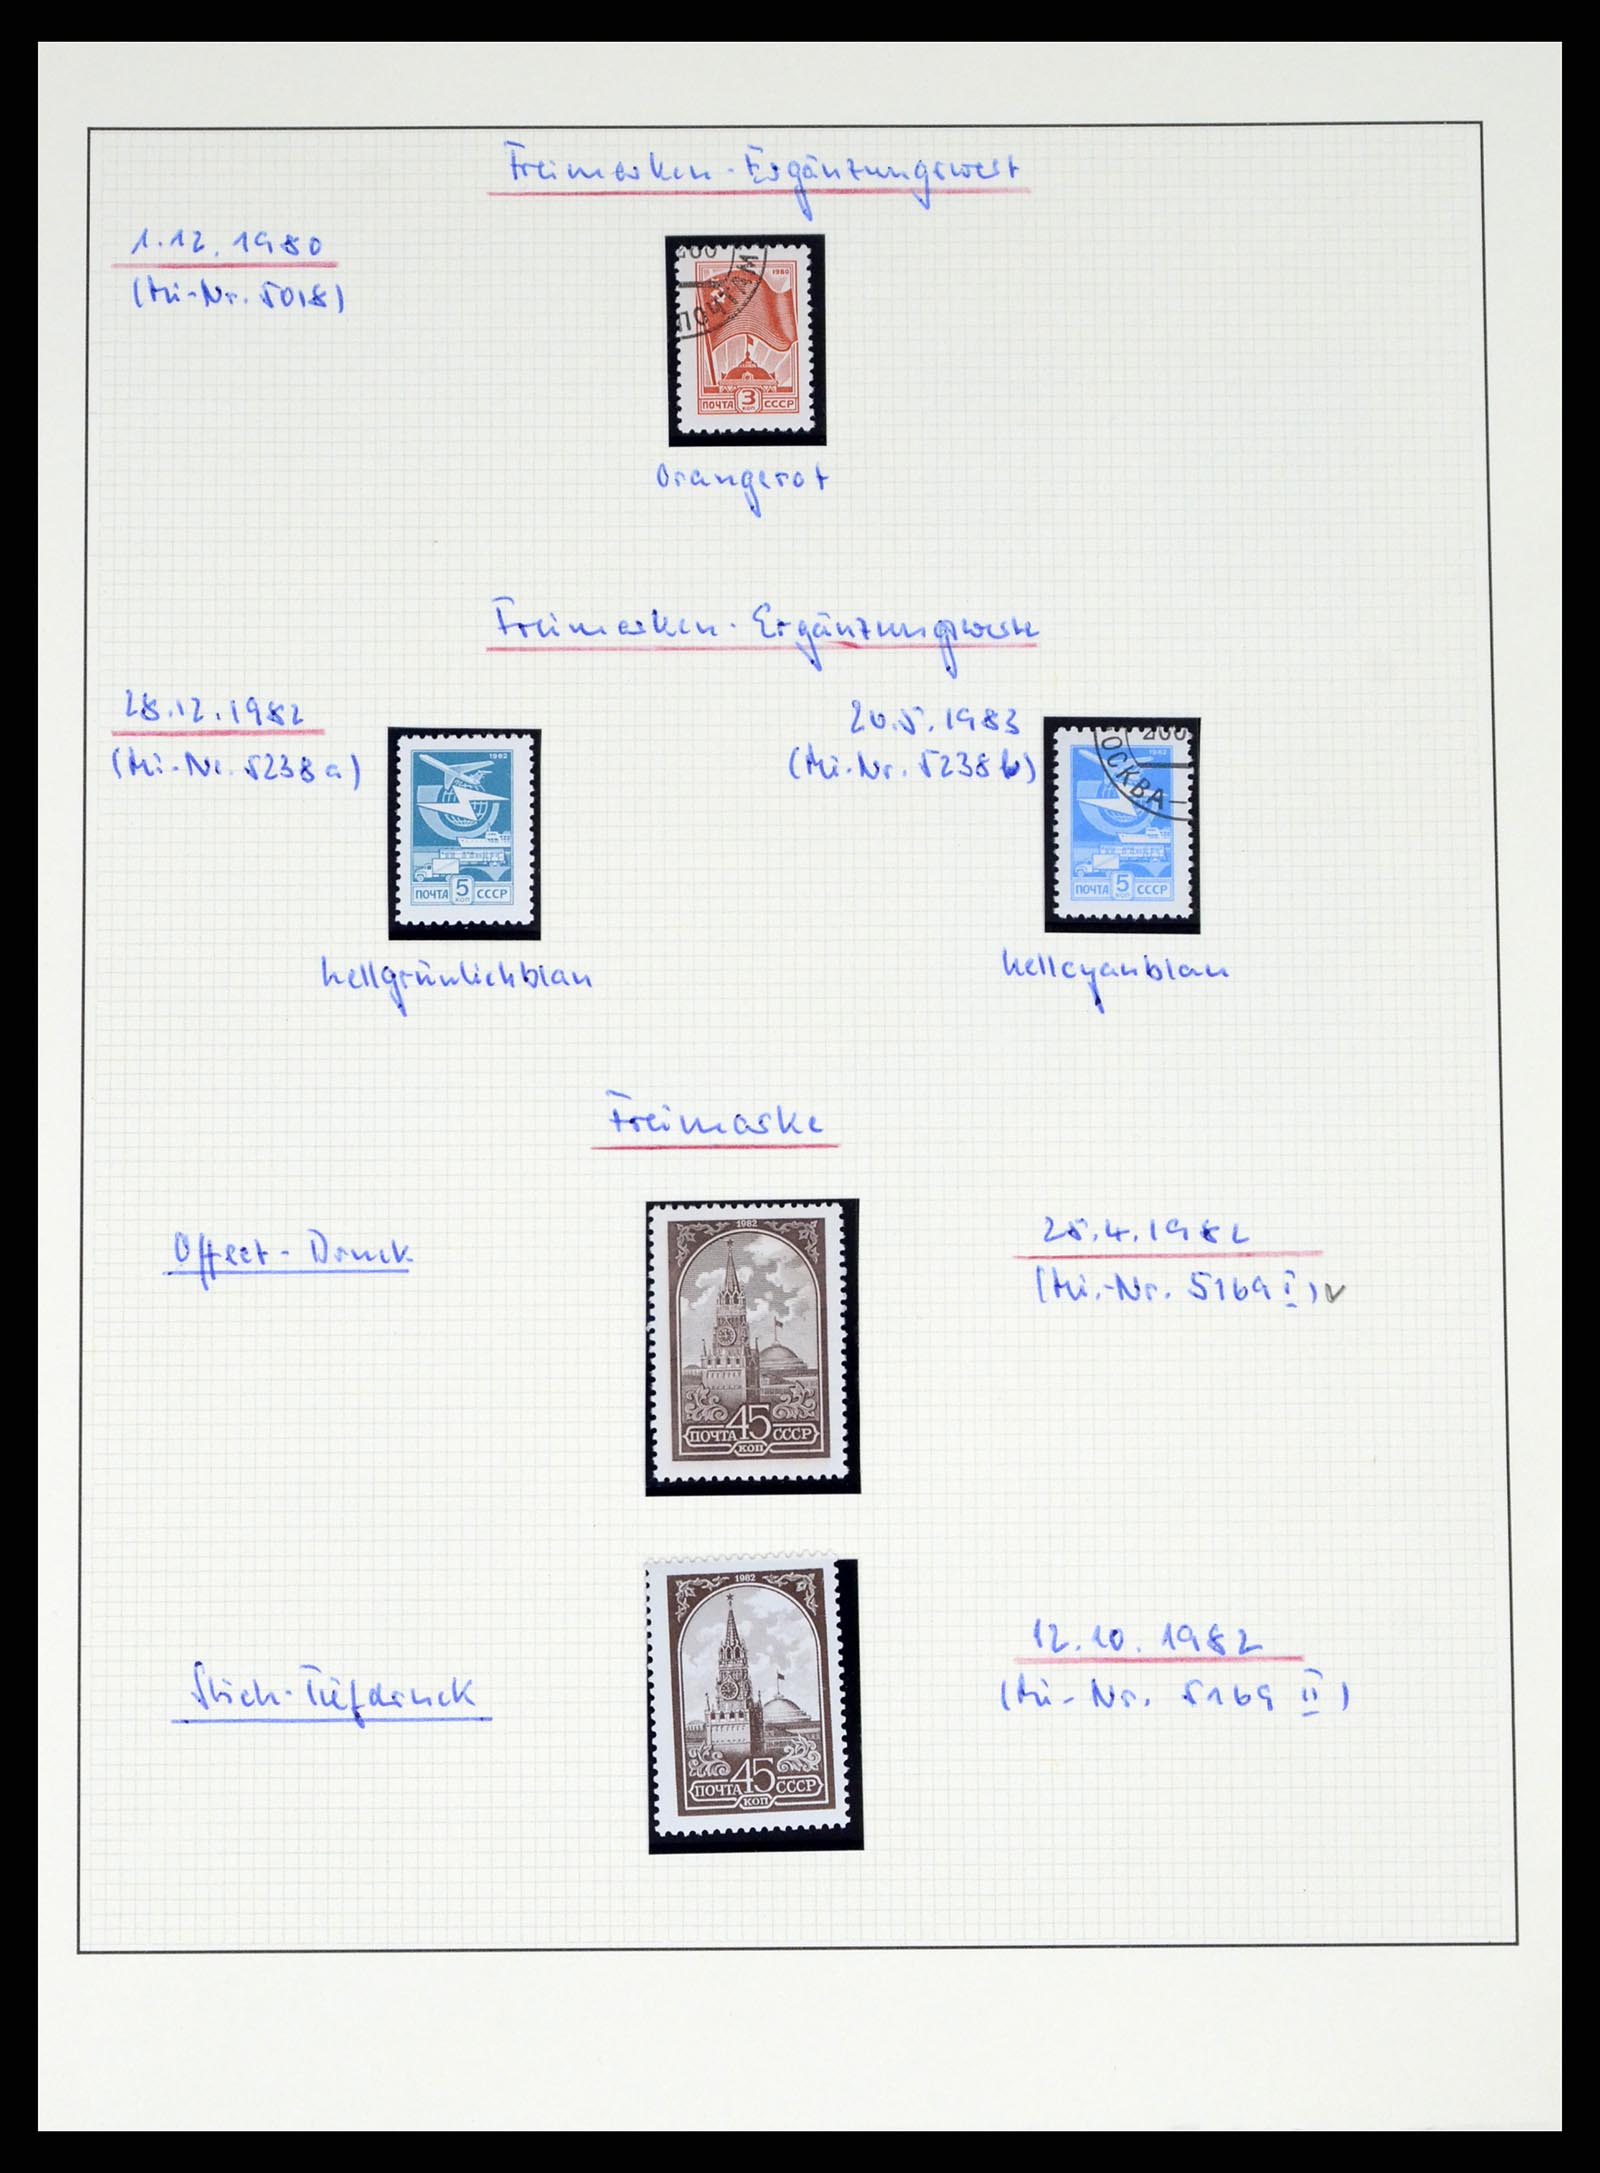 Freimarken-Ergänzungswert
1.12.1980
(Mi-Nr. 5018)
ПОЧТАМ
1980
ПОЧТА 3 КОП СССР
Orangerot
Freimarken-Ergänzungswerte
28.12.1982
(Mi-Nr. 5238 a)
1982
ПОЧТА 5 КОП СССР
hellgrünlichblau
20.5.1983
(Mi-Nr. 5238 b)
ОСКВА
1982
ПОЧТА 5 КОП СССР
hellcyanblau
Freimarke
Offset-Druck
1982
45
ПОЧТА СССР
КОП
25.4.1982
(Mi.-Nr. 5169 I) ✓
Stich-Tiefdruck
1982
45
ПОЧТА СССР
КОП
12.10.1982
(Mi-Nr. 5169 II)